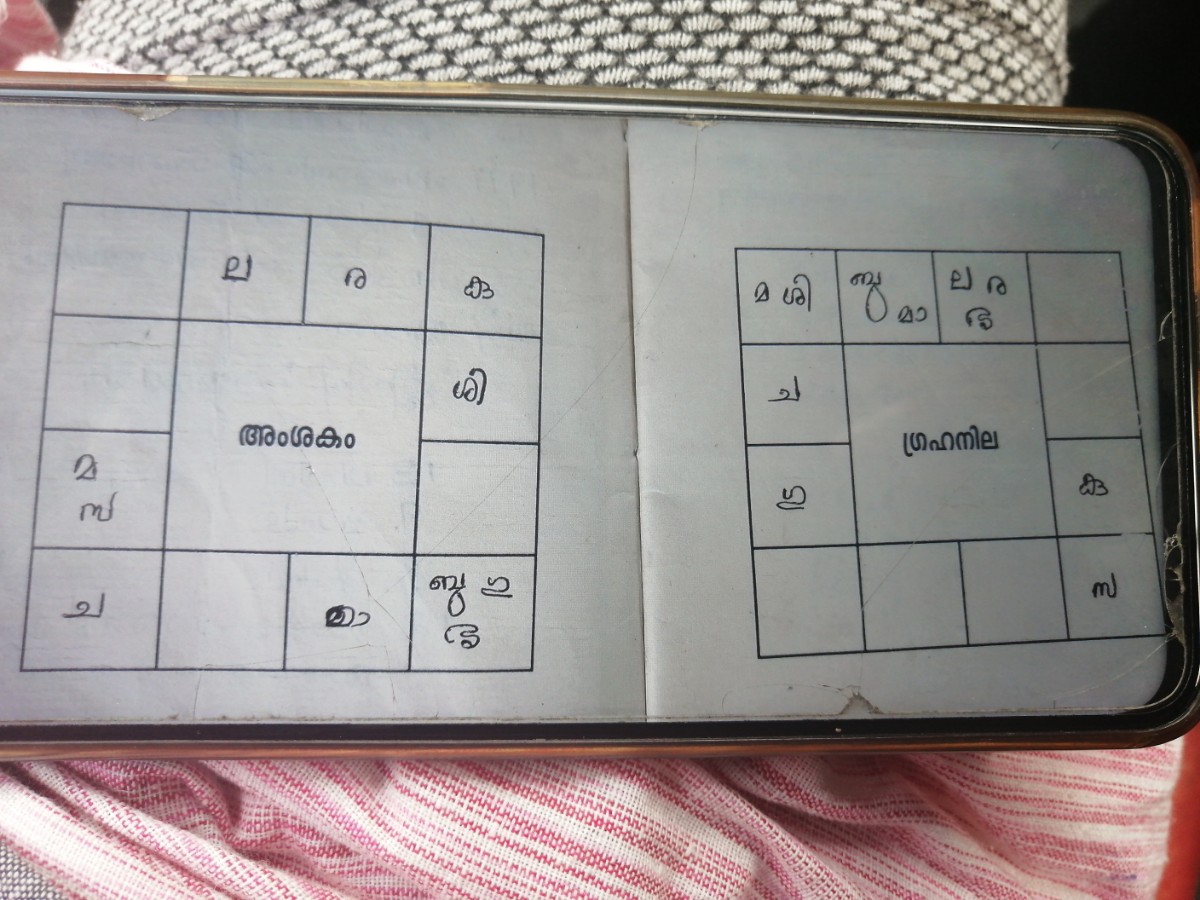 ല
ര
കു
ശി
അംശകം
മ
സ
ച
മാ
ബു ഗു
മ ശി
ബു
മാ
ല ര
ച
ഗ്രഹനില
ഗു
കു
സ